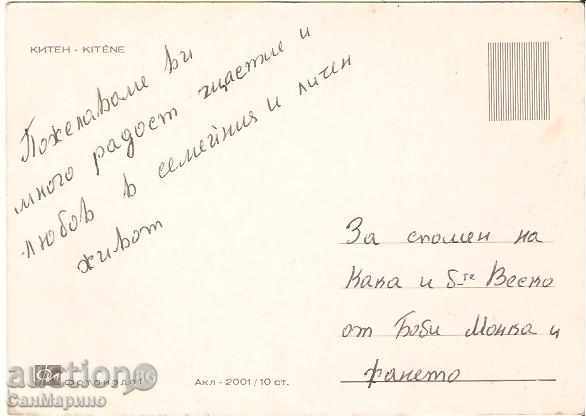 КИТЕН - KITÈNE
Пожелаваме ви
много радост щастие и
любов в семейния и личен
живот
За спомен на
Кака и б-те Веско
от Боби Монка и
фането
Фотоиздат
Акл - 2001/10 ст.
auction.BG
СанМарино